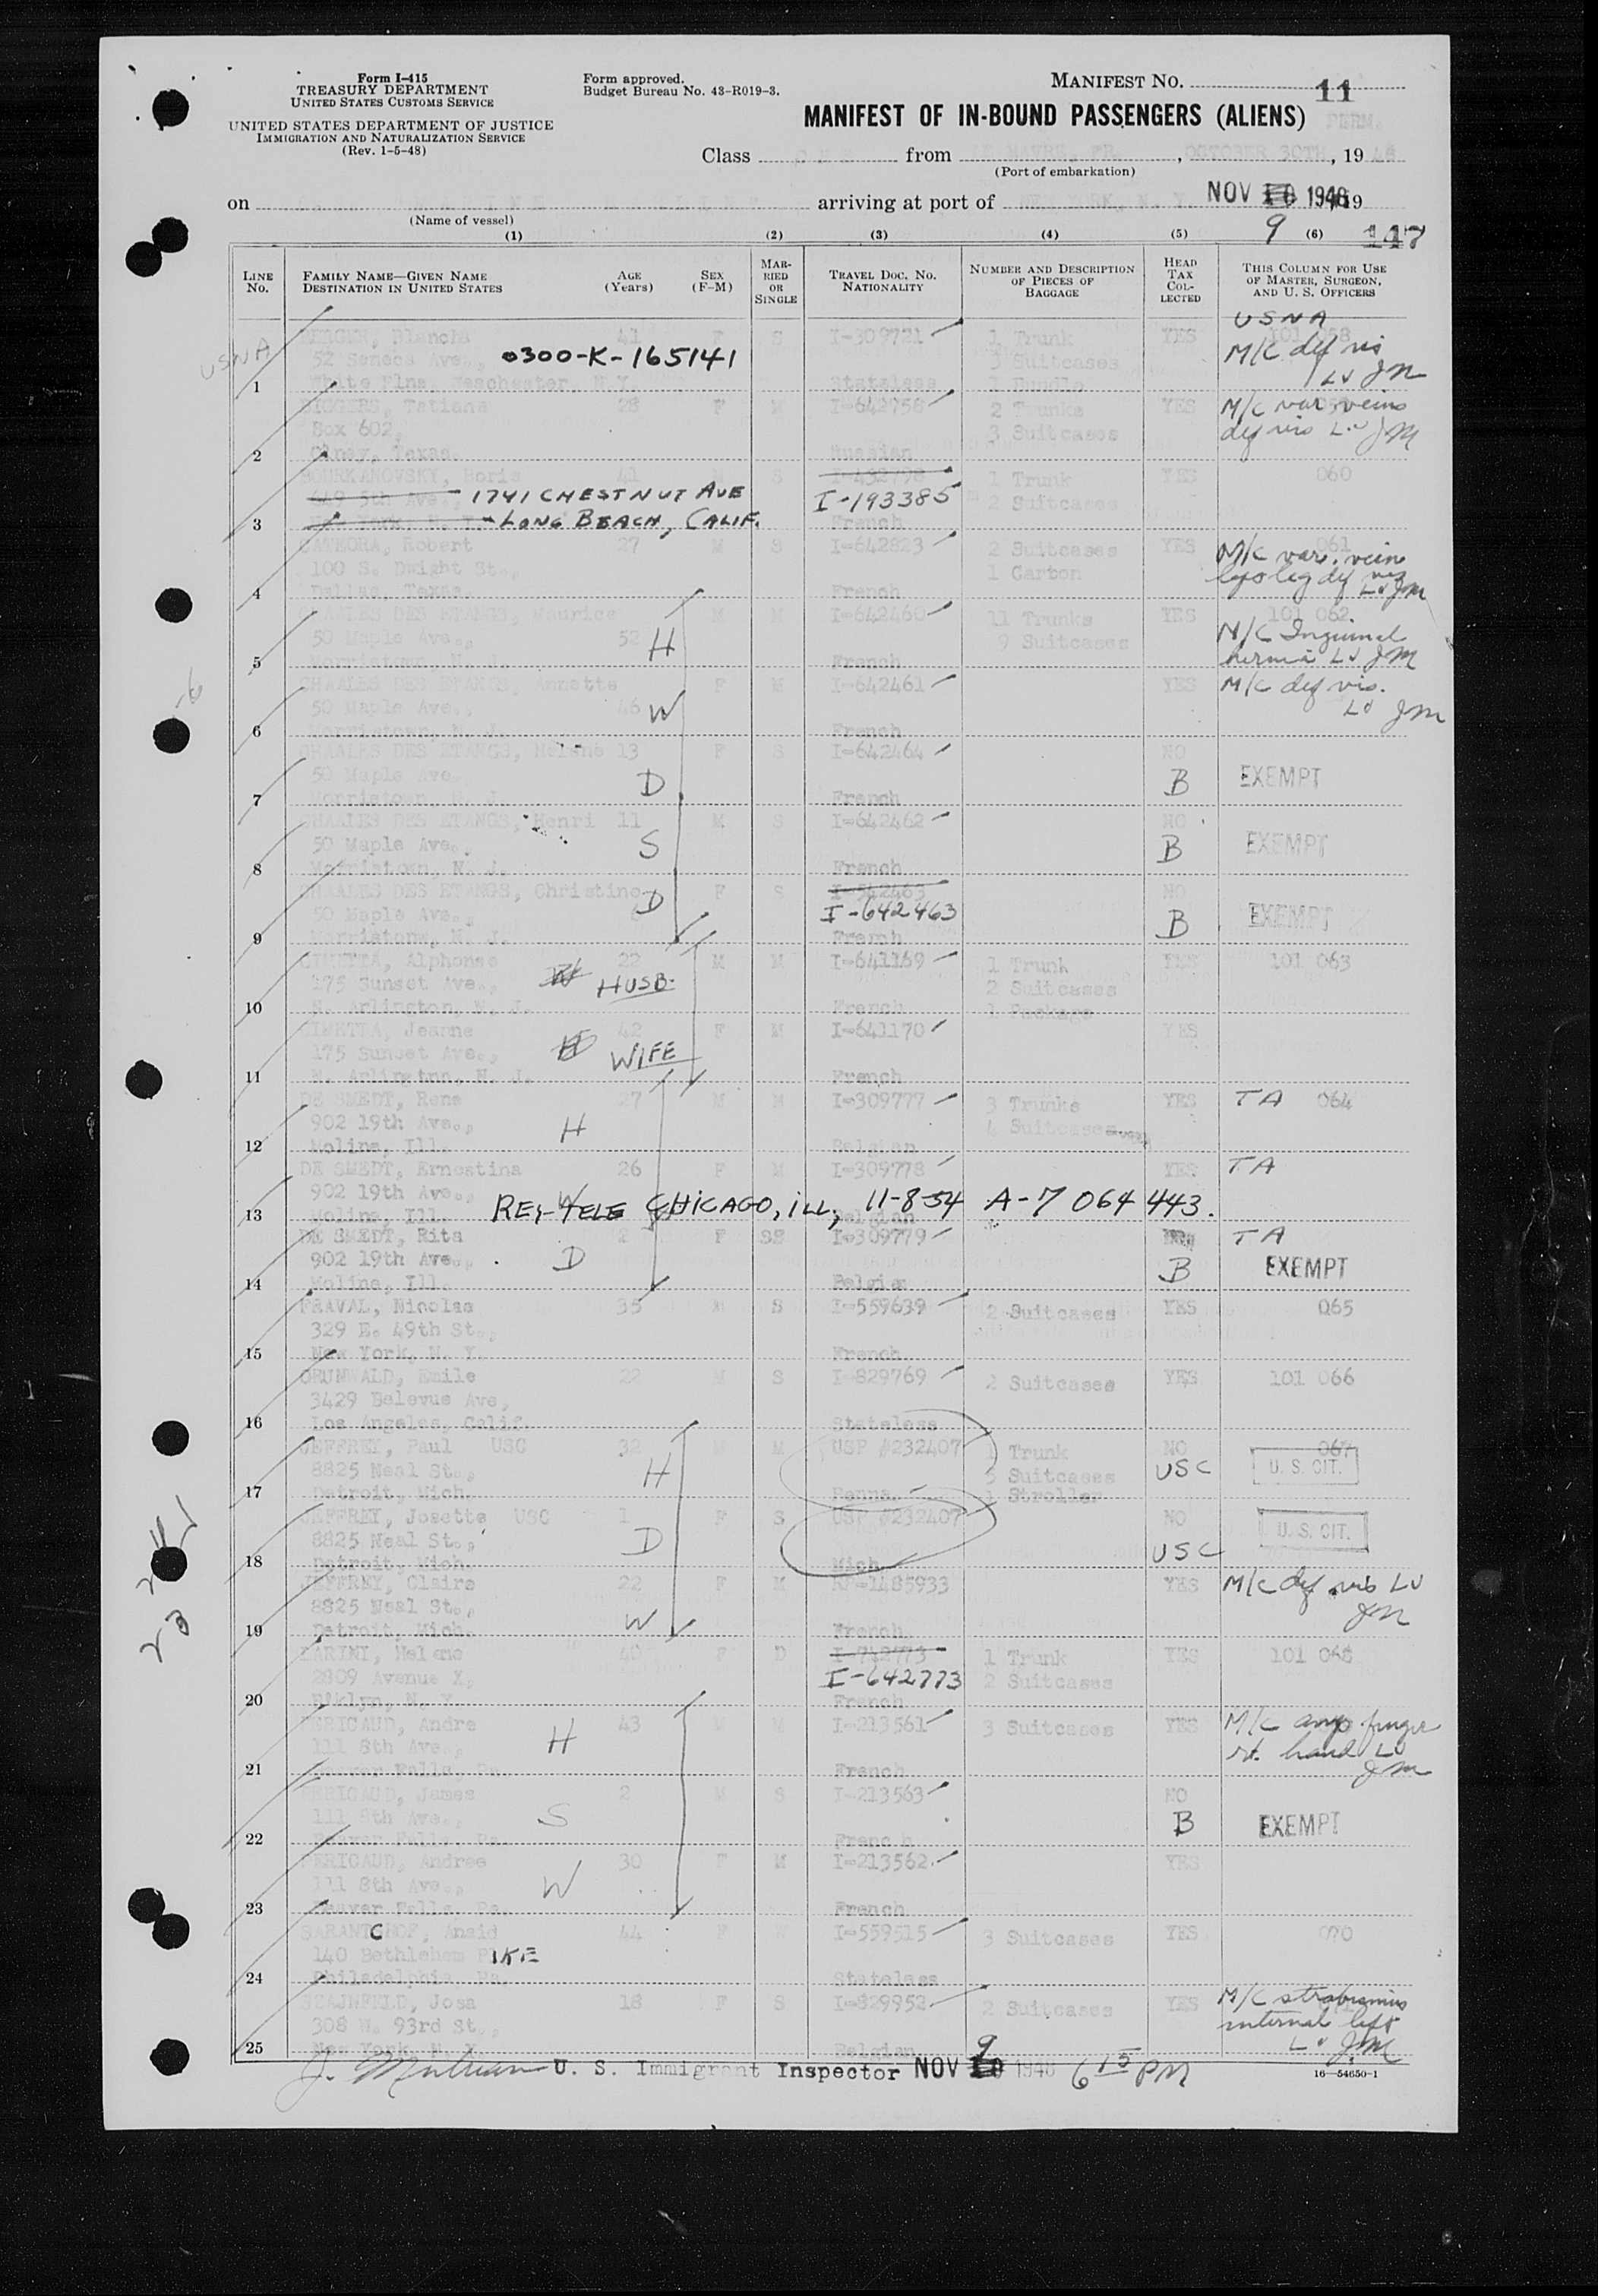 Form I-415
TREASURY DEPARTMENT
UNITED STATES CUSTOMS SERVICE
UNITED STATES DEPARTMENT OF JUSTICE
IMMIGRATION AND NATURALIZATION SERVICE
(Rev. 1-5-48)
Form approved.
Budget Bureau No. 43-R019-3.
MANIFEST NO. 11
MANIFEST OF IN-BOUND PASSENGERS (ALIENS) PERM.
Class from LE HAVRE, FR. , OCTOBER 30TH, 19 48
(Port of embarkation)
on arriving at port of NEW YORK, N. Y. NOV 10 1948 19
(Name of vessel)
9
147
(1) (2) (3) (4) (5) (6)
LINE No. FAMILY NAME—GIVEN NAME DESTINATION IN UNITED STATES AGE (Years) SEX (F-M) MARRIED OR SINGLE TRAVEL DOC. No. NATIONALITY NUMBER AND DESCRIPTION OF PIECES OF BAGGAGE HEAD TAX COLLECTED THIS COLUMN FOR USE OF MASTER, SURGEON, AND U. S. OFFICERS
USNA
USNA
BERGEN, Blancla 41 F S I-309721 1 Trunk YES 101 058
52 Seneca Ave., 0300-K-165141 3 Suitcases M/C def vis
1 White Plns, Weschester, N.Y. Stateless 1 Bundle LV JM
BIGGERS, Tatiana 28 F M I-642758 2 Trunks YES M/C var. veins
Box 602, 3 Suitcases def vis LV JM
2 Texas Russian
BOURKANOVSKY, Boris 41 M S I-432798 1 Trunk YES 060
449 5th Ave 1741 CHESTNUT AVE I-193385 2 Suitcases
3 LONG BEACH, CALIF. French
CATEORA, Robert 27 M S I-642823 2 Suitcases YES 061
100 S. Dwight St., 1 Carton M/C var. vein
4 Dallas, Texas. French LV JM
CHAALES DES ETANGS, Maurice M M I-642460 11 Trunks YES 101 062
50 Maple Ave., 52 H 9 Suitcases M/C Inguinal
5 Morristown, N. J. French hernia LV JM
CHAALES DES ETANGS, Annette F M I-642461 YES M/C def vis.
50 Maple Ave., 46 W LV JM
6 Morristown, N. J. French
CHAALES DES ETANGS, Helene 13 F S I-642464 NO
50 Maple Ave. D B EXEMPT
7 Morristown, N. J. French
CHAALES DES ETANGS, Henri 11 M S I-642462 NO
50 Maple Ave. S B EXEMPT
8 Morristown, N. J. French
CHAALES DES ETANGS, Christine F S NO
50 Maple Ave., D I-642463 B EXEMPT
9 Morristown, N. J. French
CIMETTA, Alphonse 22 M M I-641169 1 Trunk YES 101 063
175 Sunset Ave., HUSB. 2 Suitcases
10 N. Arlington, N. J. French 1 Package
CIMETTA, Jeanne 42 F M I-641170 YES
175 Sunset Ave., WIFE
11 N. Arlington, N. J. French
DE SMEDT, Rene 27 M M I-309777 3 Trunks YES TA 064
902 19th Ave., H 4 Suitcases
12 Moline, Ill. Belgian
DE SMEDT, Ernestina 26 F M I-309778 YES TA
902 19th Ave., W
13 Moline, Ill. RE:-TELE CHICAGO, ILL; 11-8-54 A-7 064 443.
DE SMEDT, Rita 2 F S I-309779 TA
902 19th Ave., D B EXEMPT
14 Moline, Ill. Belgian
FRAVAL, Nicolas 35 M S I-559639 2 Suitcases YES 065
329 E. 49th St.,
15 New York, N. Y. French
GRUNWALD, Emile 22 M S I-829769 2 Suitcases YES 101 066
3429 Belevue Ave,
16 Los Angeles, Calif. Stateless
JEFFREY, Paul USC 32 M M USP #232407 1 Trunk NO 067
8825 Neal St., H 5 Suitcases USC U. S. CIT.
17 Detroit, Mich. Penna. 1 Stroller
JEFFREY, Josette USC 1 F S USP #232407 NO
8825 Neal St., D U. S. CIT.
18 Detroit, Mich. Mich USC
JEFFREY, Claire 22 F M RP-1485933 YES M/C def vis LV
8825 Neal St., JM
19 Detroit, Mich. W French
Helene 40 F D I-742773 1 Trunk YES 101 068
2809 Avenue X, I-642773 2 Suitcases
20 Bklyn, N. Y. French
PERICAUD, Andre 43 M M I-213561 3 Suitcases YES M/C amp. finger
111 8th Ave., H rt. hand LV
21 Beaver Falls, Pa. French JM
PERICAUD, James 2 M S I-213563 NO
111 8th Ave., S B EXEMPT
22 Beaver Falls, Pa. French
PERICAUD, Andree 30 F M I-213562 YES
111 8th Ave., W
23 Beaver Falls, Pa. French
SARANTCHOF, Anaid 44 F I-559515 3 Suitcases YES 070
140 Bethlehem PIKE
24 Philadelphia, Pa. Stateless
SZAJNFELD, Josa 18 F S I-829952 2 Suitcases YES M/C strabismus
308 W. 93rd St., internal left
25 New York, N. Y. Belgian LV J.M
U. S. Immigrant Inspector NOV 10 1948 9 6 15 PM
16—54650-1